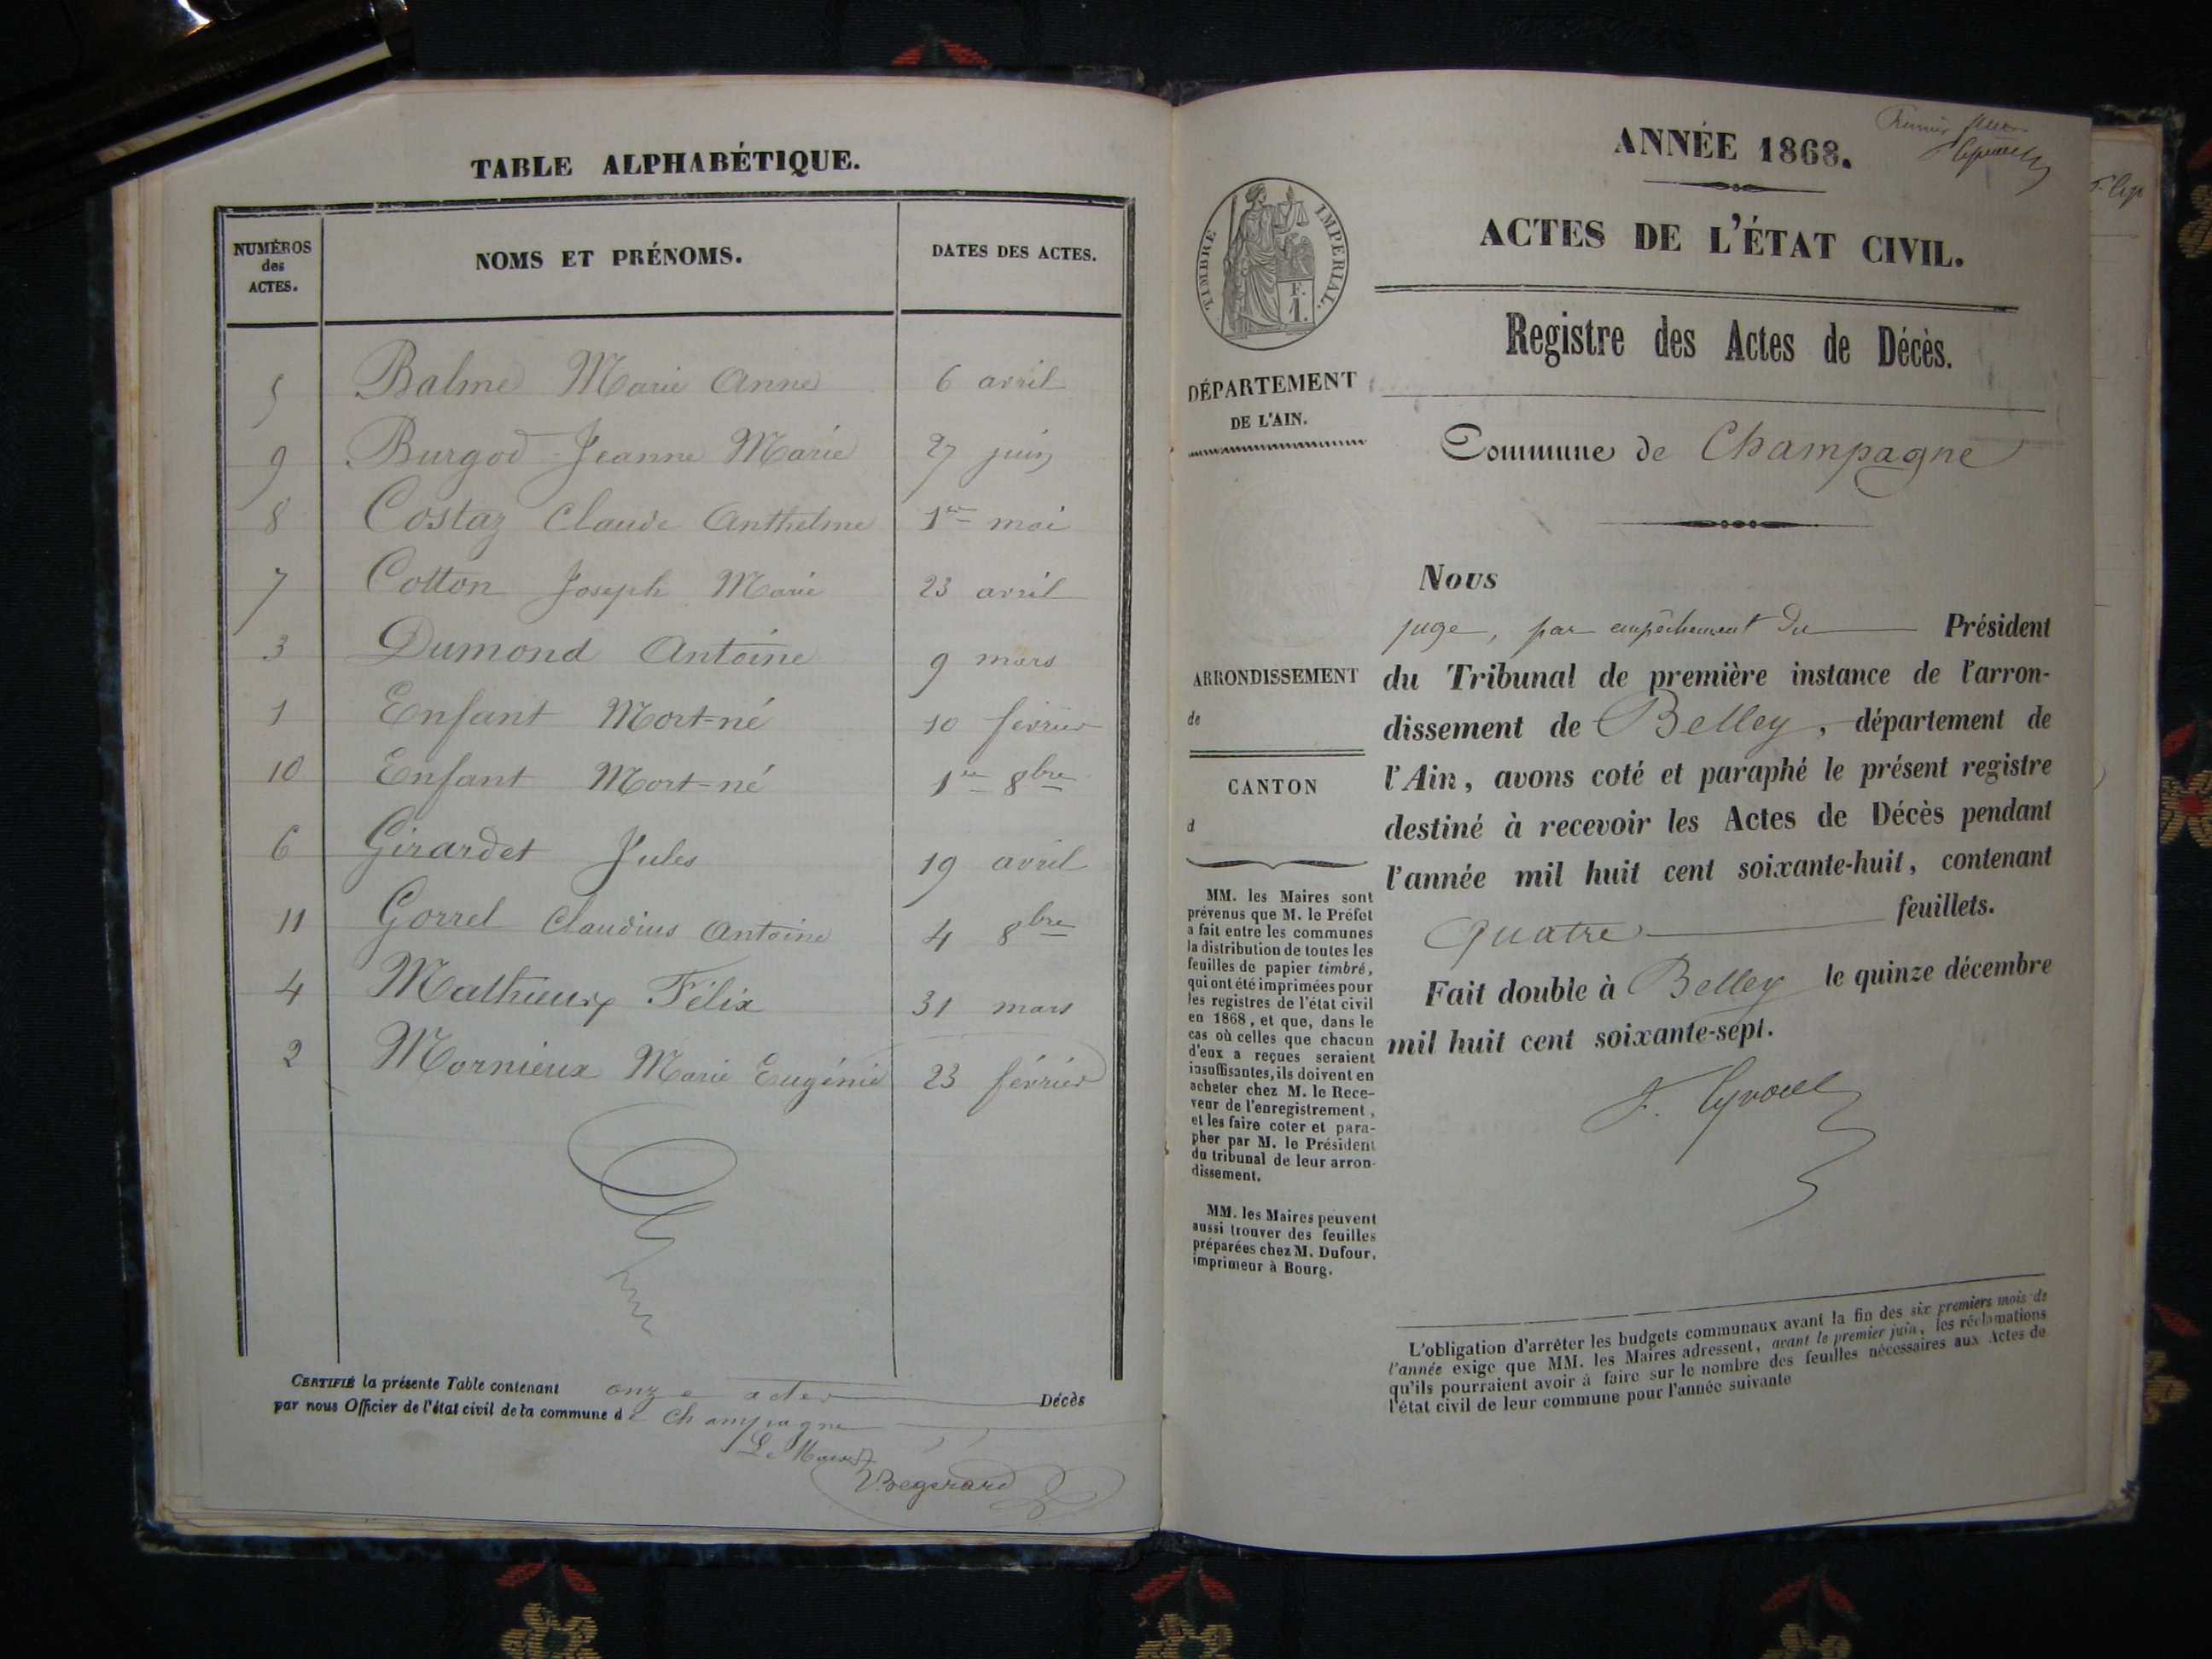 TABLE ALPHABÉTIQUE.
NUMÉROS des ACTES.
NOMS ET PRÉNOMS.
DATES DES ACTES.
5 Balme Marie Anne 6 avril
9 Burgod Jeanne Marie 27 juin
8 Costaz Claude Anthelme 1er mai
7 Cotton Joseph Marie 23 avril
3 Dumond Antoine 9 mars
1 Enfant Mort-né 10 février
10 Enfant Mort-né 1er 8bre
6 Girardet Jules 19 avril
11 Gorrel Claudius Antoine 4 8bre
4 Mathieux Félix 31 mars
2 Mornieux Marie Eugénie 23 février
CERTIFIÉ la présente Table contenant onze actes Décès
par nous Officier de l'état civil de la commune de Champagne
Le Maire
ANNÉE 1868.
ACTES DE L'ÉTAT CIVIL.
Registre des Actes de Décès.
TIMBRE IMPERIAL.
F.
1.
DÉPARTEMENT
DE L'AIN.
Commune de Champagne
Nous
juge, par empêchement du Président
du Tribunal de première instance de l'arron-
dissement de Belley, département de
l'Ain, avons coté et paraphé le présent registre
destiné à recevoir les Actes de Décès pendant
l'année mil huit cent soixante-huit, contenant
quatre feuillets.
Fait double à Belley le quinze décembre
mil huit cent soixante-sept.
ARRONDISSEMENT
de
CANTON
d
MM. les Maires sont
prévenus que M. le Préfet
a fait entre les communes
la distribution de toutes les
feuilles de papier timbré,
qui ont été imprimées pour
les registres de l'état civil
en 1868, et que, dans le
cas où celles que chacun
d'eux a reçues seraient
insuffisantes, ils doivent en
acheter chez M. le Rece-
veur de l'enregistrement,
et les faire coter et para-
pher par M. le Président
du tribunal de leur arron-
dissement.
MM. les Maires peuvent
aussi trouver des feuilles
préparées chez M. Dufour,
imprimeur à Bourg.
L'obligation d'arrêter les budgets communaux avant la fin des six premiers mois de
l'année exige que MM. les Maires adressent, avant le premier juin, les réclamations
qu'ils pourraient avoir à faire sur le nombre des feuilles nécessaires aux Actes de
l'état civil de leur commune pour l'année suivante